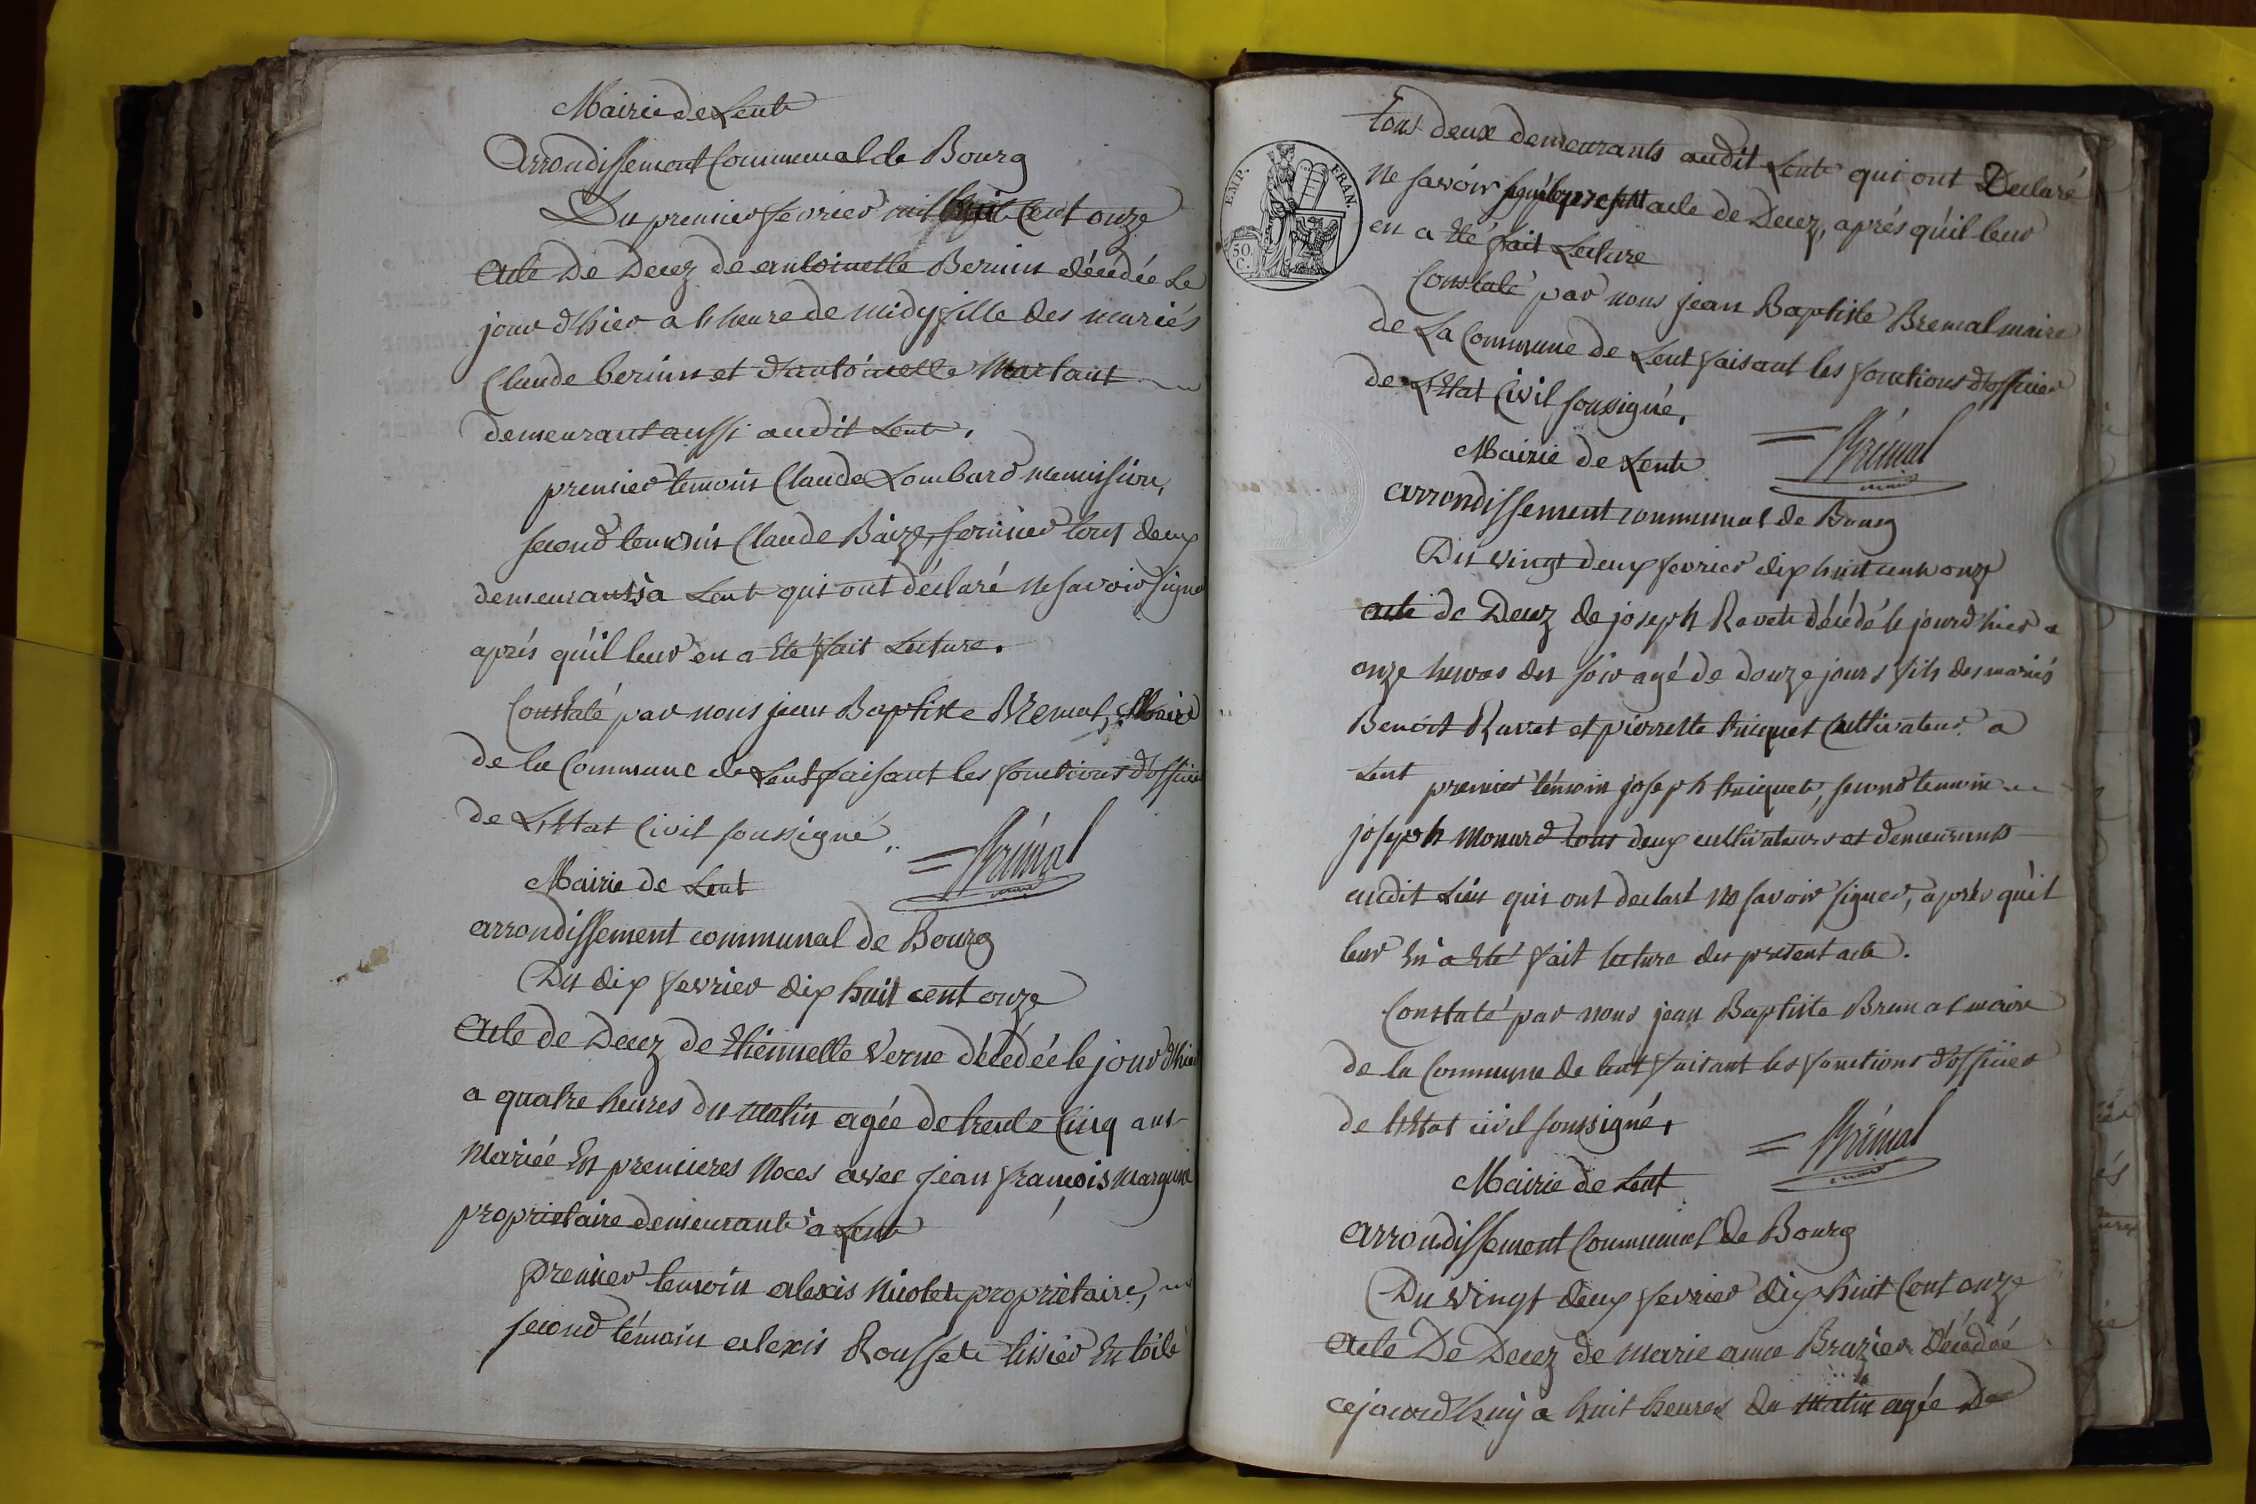 Mairie de Lent
Arrondissement Communal de Bourg
Du premier fevrier mil huit Cent onze
Acte De Decez de antoinette Bernin décédée Le
jour d'hier a l'heure de midy fille des mariés
Claude bernin et d'antoinette
demeurant aussi audit Lent.
premier temoin Claude Lombard menuision,
second temoin Claude fermier tous deux
demeurants à Lent qui ont déclaré ne savoir signe
aprés qu'il leur en a Eté fait Lecture.
Constaté par nous jean Baptiste Bremal, Maire
de la Commune de Lent faisant les fonctions d'officier
de L'Etat Civil soussigné.
= Brémal
maire
Mairie de Lent
arrondissement communal de Bourg
Du dix fevrier dix huit cent onze
Acte de Decez de Ethiennette Verne décédée le jour d'hier
a quatre heures du matin agée de trente Cinq ans
Mariée En premieres Noces avec jean françois
proprietaire demeurant à Lent
premier temoin alexis Niolet proprietaire,
second témoin alexis Rousset tissier En toile
EMP. FRAN.
50 C.
tous deux demeurants audit Lent qui ont Declaré
Ne savoir signé le present acte de Decez, aprés qu'il leur
en a Eté fait Lecture
Constaté par nous jean Baptiste Bremal maire
de La Commune de Lent faisant les fonctions d'officier
de L'Etat Civil soussigné.
= Brémal
maire
Mairie de Lent
arrondissement communal de Bourg
Du vingt deux fevrier dix huit cent onze
acte de Decez de joseph Ravet décédé le jour d'hier a
onze heures du soir agé de douze jours fils des mariés
Benoit Ravet et pierrette tricquet Cultivateur a
Lent premier témoin joseph tricquet, second temoin
joseph Monard tous deux cultivateurs et demeurants
audit Lieu qui ont declaré ne savoir signer, aprés qu'il
leur En a Eté fait lecture du present acte.
Constaté par nous jean Baptiste Bremal maire
de la Commune de lent faisant les fonctions d'officier
de l'Etat civil soussigné.
= Brémal
maire
Mairie de Lent
arrondissement Communal de Bourg
Du vingt deux fevrier dix huit Cent onze
Acte De Decez de marie anne Brazier décédée
cejourd'huy a huit heures du matin agée De